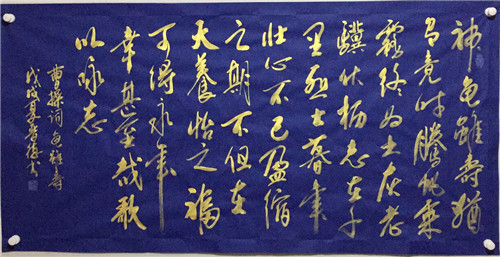 神龟雖壽猶
有竟时騰蛇乘
霧终为土灰老
驥伏枥志在千
里烈士暮年
壮心不已盈缩
之期不但在
天養怡之福
可得永年
幸甚至哉歌
以咏志
曹操词龟雖寿
戊戌夏